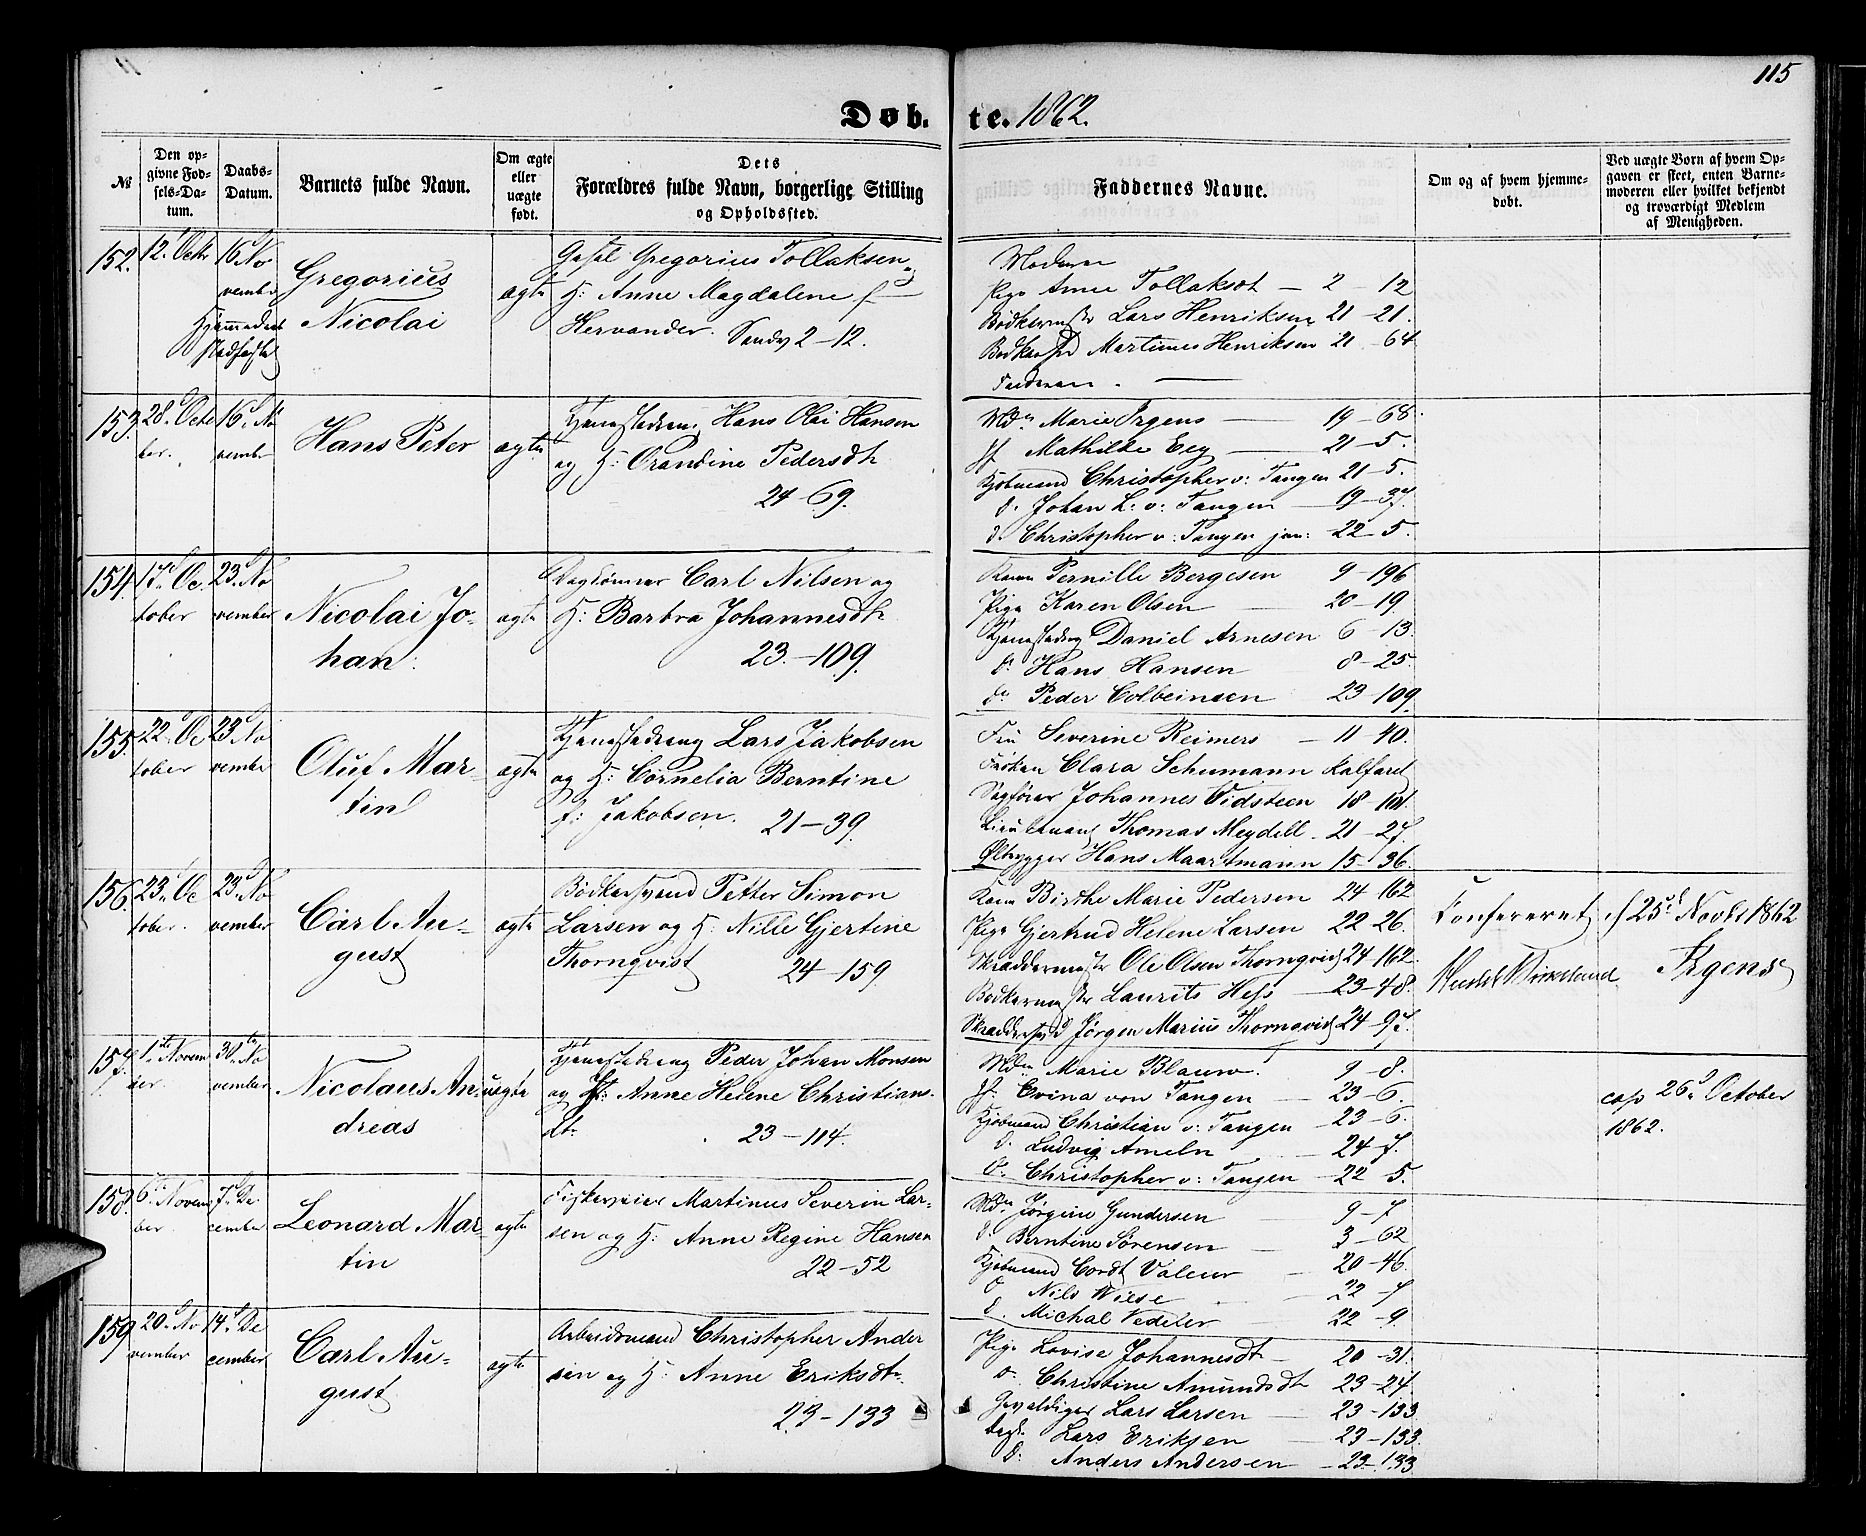 115
Døb- te. 1862.
№
Den opgivne Fødsels-Datum.
Daabs-Datum.
Barnets fulde Navn.
Om ægte eller uægte født.
Dets Forældres fulde Navn, borgerlige Stilling og Opholdssted.
Faddernes Navne.
Om og af hvem hjemmedøbt.
Ved uægte Børn af hvem Opgaven er skeet, enten Barnemoderen eller hvilket bekjendt og troværdigt Medlem af Menigheden.
152. 12. Octr 16. November
Hjemmedaab stadfæstet
Gregorius Nicolai
ægte
Gregorius Tollaksen og
H: Anne Magdalene f
Hervander. Sandv 2-12.
Moderen
Pige Anne Tollaksdt - 2-12
Bødkermester Lars Henriksen 21-21.
Bødkersvd Martinus Henriksen 21-64
Faderen.
153. 28. October. 16. November
Hans Peter
ægte
Tjenestedreng Hans Olai Hansen
og H: Orandine Pedersdt.
24-69.
Mdm Marie Irgens - 19-68.
Jf Mathilde Eeg - 21-5.
Kjøbmand Christopher v: Tangen 21-5.
d. Johan L. v: Tangen - 19-37.
d. Christopher v: Tangen jun: - 22-5.
154. 17. October 23. November
Nicolai Johan.
ægte
Dagkonner Carl Nilsen og
H: Barbra Johannesdt.
23.-109.
Kone Pernille Bergesen 9-196
Pige Karen Olsen - 20-19.
Tjenestedreng Daniel Arnesen 6-13.
d. Hans Hansen 8-25.
do Peder Colbeinsen 23-109.
155. 22. October 23. November
Oluf Martin
ægte
Tjenestedreng Lars Jakobsen
og H: Cornelia Berntine
f: Jakobsen. 21-39.
Fru Severine Reimers - 11-40.
Frøken Clara Schumann Kalfaret
Sagfører Johannes Vidsteen 18-101.
Lieutenant Thomas Meydell - 21-27.
Ølbrygger Hans Maartmann 15-36.
156. 23. October. 23. November
Carl August
ægte
Bødkersvend Petter Simon
Larsen og H: Nille Gjertine
Thornqvist 24-159
Kone Birthe Marie Pedersen 24-162
Pige Gjertrud Helene Larsen 22-26.
Skræddermester Ole Olsen Thornqvist 24-162.
Bødkermester Laurits Hess - 23-48.
Skræddersvd Jørgen Marius Thornqvist 24-97.
Confereret d 25. Novbr 1862
Irgens
157. 1ste November 30te November
Nicolaus Andreas
uægte
Tjenestedreng Peder Johan Monsen
og Anne Helene Christiansdt.
23-114.
Mdm Marie Blauw. 9-8.
Jf. Evina von Tangen - 23-6.
Kjøbmand Christian v: Tangen - 23-6.
d. Ludvig Ameln 24-7.
d. Christopher v: Tangen - 22-5.
cop 26. October
1862.
158. 6. November 7. December
Leonard Martin
ægte
Fiskerveier Martinus Severin Larsen
og H: Anne Regine Hansen
22-52
Mdm Jørgine Gundersen - 9-7
d. Berntine Sørensen - 3-62
Kjøbmand Cordt Valeur - 20-46.
d Nils Wiese - 22-7
d. Michal Vedeler - 22-9.
159. 20. November 14. December
Carl August
ægte
Arbeidsmand Christopher Andersen
og H: Anne Eriksdt.
23-133
Pige Lovise Johannesdt - 20-31.
do Christine Amundsdt 23-24
Gevaldiger Lars Larsen - 23-133.
Dagk. Lars Eriksen - 23-133.
d: Anders Andersen - 23-133